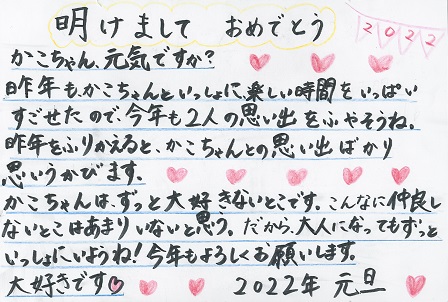 明けまして おめでとう
2022
かこちゃん、元気ですか?
昨年も、かこちゃんといっしょに楽しい時間をいっぱい
すごせたので、今年も2人の思い出をふやそうね。
昨年をふりかえると、かこちゃんとの思い出ばかり
思いうかびます。
かこちゃんは、ずっと大好きないとこです。こんなに仲良し
ないとこはあまりいないと思う。だから、大人になってもずっと
いっしょにいようね!今年もよろしくお願いします。
大好きです 2022年 元旦